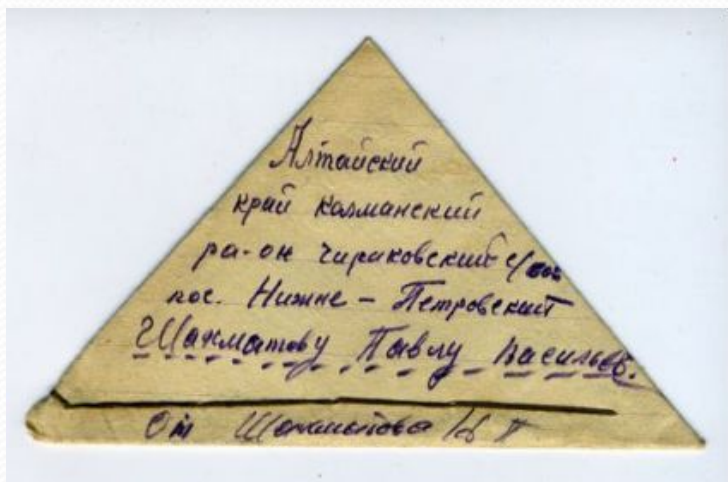 Алтайский
край Калманский
ра-он чириковский с/сов
пос. Нижне - Петровский
Шахматову Павлу Васильев.
От Шахматова